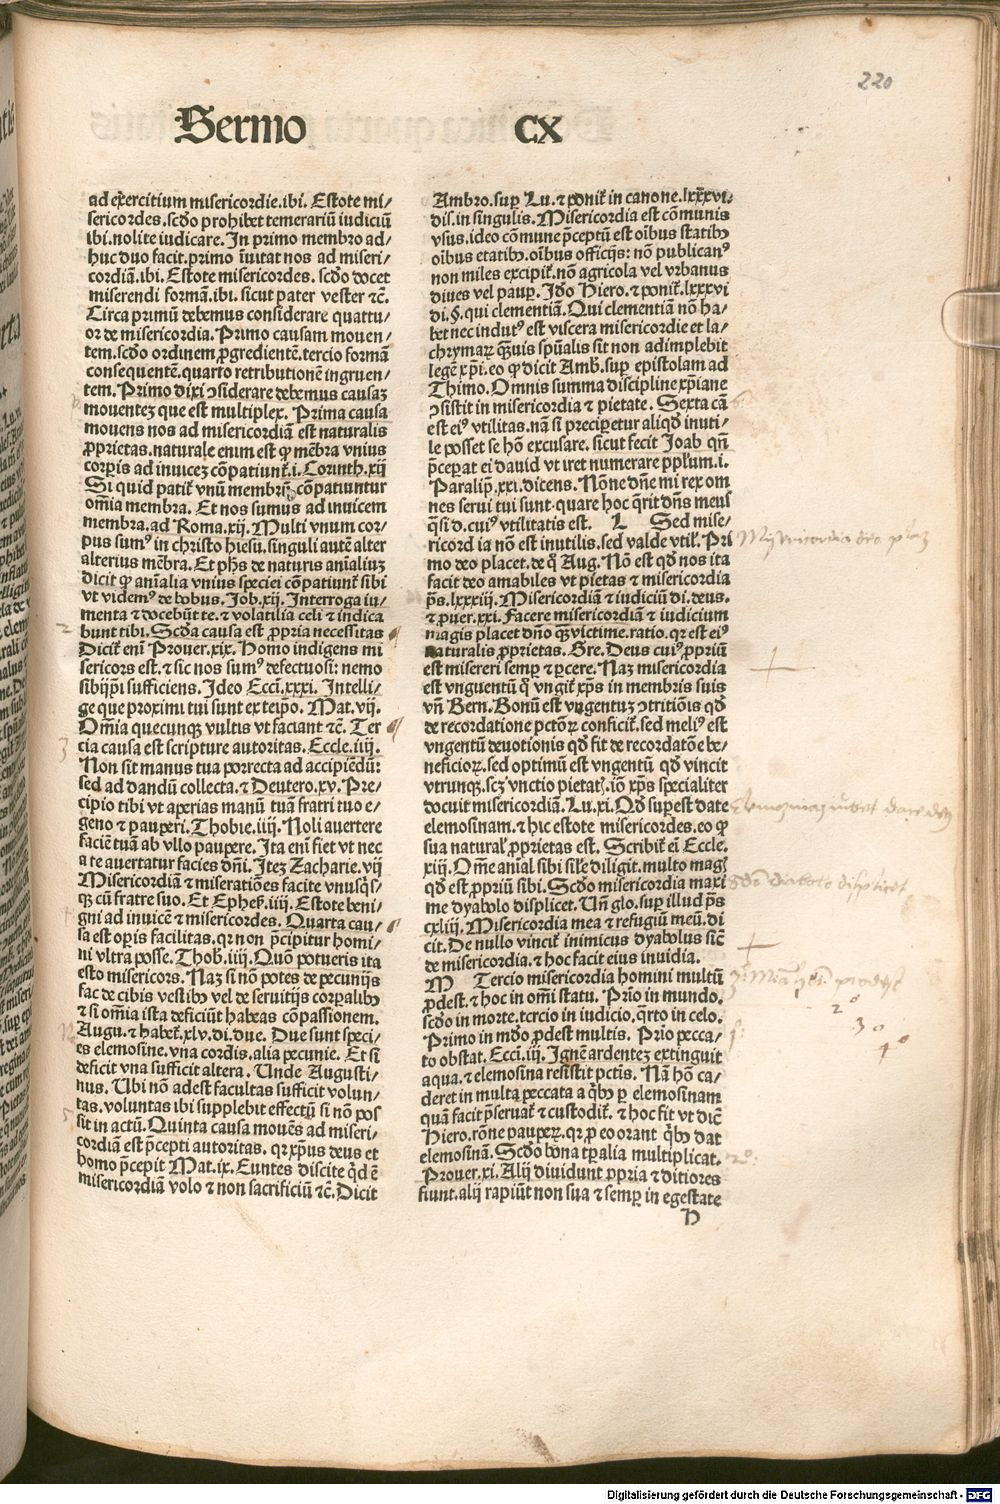 220
Sermo CX
ad exercitium misericordie.ibi. Estote mi/
sericordes.scḋo prohibet temerariū iudiciū
ibi.nolite iudicare. In primo membro ad/
huc duo facit.primo īuitat nos ad miseri/
cordiā.ibi. Estote misericordes. scḋo docet
miserendi formā.ibi. sicut pater vester ⁊c̄.
Circa primū debemus considerare quattu/
or de misericordia. Primo causam mouen/
tem.scḋo ordinem ꝓgredientē.tercio formā
consequentē.quarto retributionē ingruen/
tem. Primo dixi ꝯsiderare debemus causaꝫ
mouenteꝫ que est multiplex. Prima causa
mouens nos ad misericordiā est naturalis
ꝓprietas.naturale enim est ꝙ mēbra vnius
corꝑis ad inuiceꝫ cōpatiunt̄.i. Corinth.xij
Si quid patit̄ vnū membrū cōpatiuntur
om̄ia membra. Et nos sumus ad inuicem
membra.ad Roma.xij. Multi vnum cor/
pus sumꝰ in christo hiesu.singuli autē alter
alterius mēbra. Et ph̄s de naturis aīaliuꝫ
dicit ꝙ aīalia vnius speciei cōpatiunt̄ sibi
vt videmꝰ de bobus. Job.xij. Interroga iu/
menta ⁊ docebūt te.⁊ volatilia celi ⁊ indica
bunt tibi. Scḋa causa est ꝓpria necessitas
Dicit̄ enī Prouer.xix. Homo indigens mi
sericors est.⁊ sic nos sumꝰ defectuosi: nemo
sibijpsi sufficiens. Ideo Ecci.xxxi. Intelli/
ge que proximi tui sunt ex teipo. Mat.vij.
Om̄ia quecunqꝫ vultis vt faciant ⁊c̄. Ter
cia causa est scripture autoritas. Eccle.iiij.
Non sit manus tua porrecta ad accipiēdū:
sed ad dandū collecta.⁊ Deutero.xv. Pre/
cipio tibi vt aperias manū tuā fratri tuo e/
geno ⁊ pauperi. Thobie.iiij. Noli auertere
faciē tuā ab vllo paupere. Ita enī fiet vt nec
a te auertatur facies dn̄i. Iteꝫ Zacharie.vij
Misericordiā ⁊ miseratiōes facite vnusqs/
qꝫ cū fratre suo. Et Ephes̄.iiij. Estote beni/
gni ad inuicē ⁊ misericordes. Quarta cau/
sa est oꝑis facilitas.qꝛ non p̄cipitur homi/
ni vltra posse. Thob.iiij. Quō potueris ita
esto misericors. Naꝫ si nō potes de pecunijs
fac de cibis vestibꝰ vel de seruitijs corꝑalibꝰ
⁊ si om̄ia ista deficiūt habeas cōpassionem.
Augu.⁊ habet̄.xlv.di.due. Due sunt speci/
es elemosine.vna cordis.alia pecunie. Et si
deficit vna sufficit altera. Unde Augusti/
nus. Ubi nō adest facultas sufficit volun/
tas.voluntas ibi supplebit effectū si nō pos
sit in actū. Quinta causa mouēs ad miseri/
cordiā est p̄cepti autoritas. qꝛ xp̄us deus et
homo p̄cepit Mat.ix. Euntes discite qd̄ ē
misericordiā volo ⁊ non sacrificiū ⁊c̄. Dicit
Ambro.suꝑ Lu.⁊ ponit̄ in canone.lxxxvi.
dis.in singulis. Misericordia est cōmunis
vsus.ideo cōmune p̄ceptū est oībus statibꝰ
oībus etatibꝰ.oībus officijs: nō publicanꝰ
non miles excipit̄.nō agricola vel vrbanus
diues vel pauꝑ. Iḋo Hiero.⁊ ponit̄.lxxxvi
di.§.qui clementiā. Qui clementiā nō ha/
bet nec indutꝰ est viscera misericordie et la/
chrymaꝝ q̄ꝫuis spūalis sit non adimplebit
legē xp̄i.eo ꝙ dicit Amb̄.suꝑ epistolam ad
Thimo. Omnis summa discipline xp̄iane
ꝯsistit in misericordia ⁊ pietate. Sexta cā
est eiꝰ vtilitas.nā si preciꝑetur aliqd̄ inuti/
le posset se hō excusare. sicut fecit Joab qn̄
p̄ceꝑat ei dauid vt iret numerare pplm̄.i.
Paralip̄.xxi.dicens. Nōne dn̄e mi rex om
nes serui tui sunt.quare hoc q̄rit dn̄s meus
q̄si d.cuiꝰ vtilitatis est. L Sed mise/
ricordia nō est inutilis.sed valde vtil̄. Pri
mo deo placet.de q̊ Aug. Nō est qd̄ nos ita
facit deo amabiles vt pietas ⁊ misericordia
p̄s.lxxxiij. Misericordiā ⁊ iudiciū di.deus.
⁊ ꝓuer.xxi. Facere misericordiā ⁊ iudicium
magis placet dn̄o q̄ꝫ victime.ratio.qꝛ est eiꝰ
naturalis ꝓprietas. Gre. Deus cuiꝰ ꝓpriū
est misereri semꝑ ⁊ ꝑcere. Naꝫ misericordia
est vnguentū q̊ vngit̄ xp̄s in membris suis
vn̄ Bern. Bonū est vngentuꝫ ꝯtritiōis qd̄
de recordatione pctōꝝ conficit̄.sed meliꝰ est
vngentū deuotionis qd̄ fit de recordatōe be/
neficioꝝ.sed optimū est vngentū qd̄ vincit
vtrunqꝫ.scꝫ vnctio pietatꝭ.iō xp̄s specialiter
docuit misericordiā. Lu.xi. Qd̄ suꝑest date
elemosinam.⁊ hic estote misericordes.eo ꝙ
sua natural̄ ꝓprietas est. Scribit̄ ei Eccle.
xiij. Om̄e anial sibi sil̄e diligit.multo magꝭ
qd̄ est ꝓpriū sibi. Scḋo misericordia maxi
me dyabolo displicet. Un̄ glo.suꝑ illud p̄s
cxliij. Misericordia mea ⁊ refugiū meū.di
cit. De nullo vincit̄ inimicus dyabolus sic̄
de misericordia.⁊ hoc facit eius inuidia.
M Tercio misericordia homini multū
ꝓdest.⁊ hoc in om̄i statu. Prīo in mundo.
scḋo in morte.tercio in iudicio.q̄rto in celo.
Primo in mḋo ꝓdest multis. Prīo pecca/
to obstat. Ecci.iij. Ignē ardenteꝫ extinguit
aqua.⁊ elemosina resistit pctis. Nā hō ca/
deret in multa peccata a q̊bꝰ ꝑ elemosinam
quam facit p̄seruat̄ ⁊ custodit̄.⁊ hoc fit vt dic̄
Hiero.rōne pauperꝝ.qꝛ ꝓ eo orant q̊bꝰ dat
elemosinā. Scḋo bona tꝑalia multiplicat.
Prouer.xi. Alij diuidunt ꝓpria ⁊ ditiores
fiunt.alij rapiūt non sua ⁊ semꝑ in egestate
h
2
3
2º
3º
4º
Digitalisierung gefördert durch die Deutsche Forschungsgemeinschaft - DFG